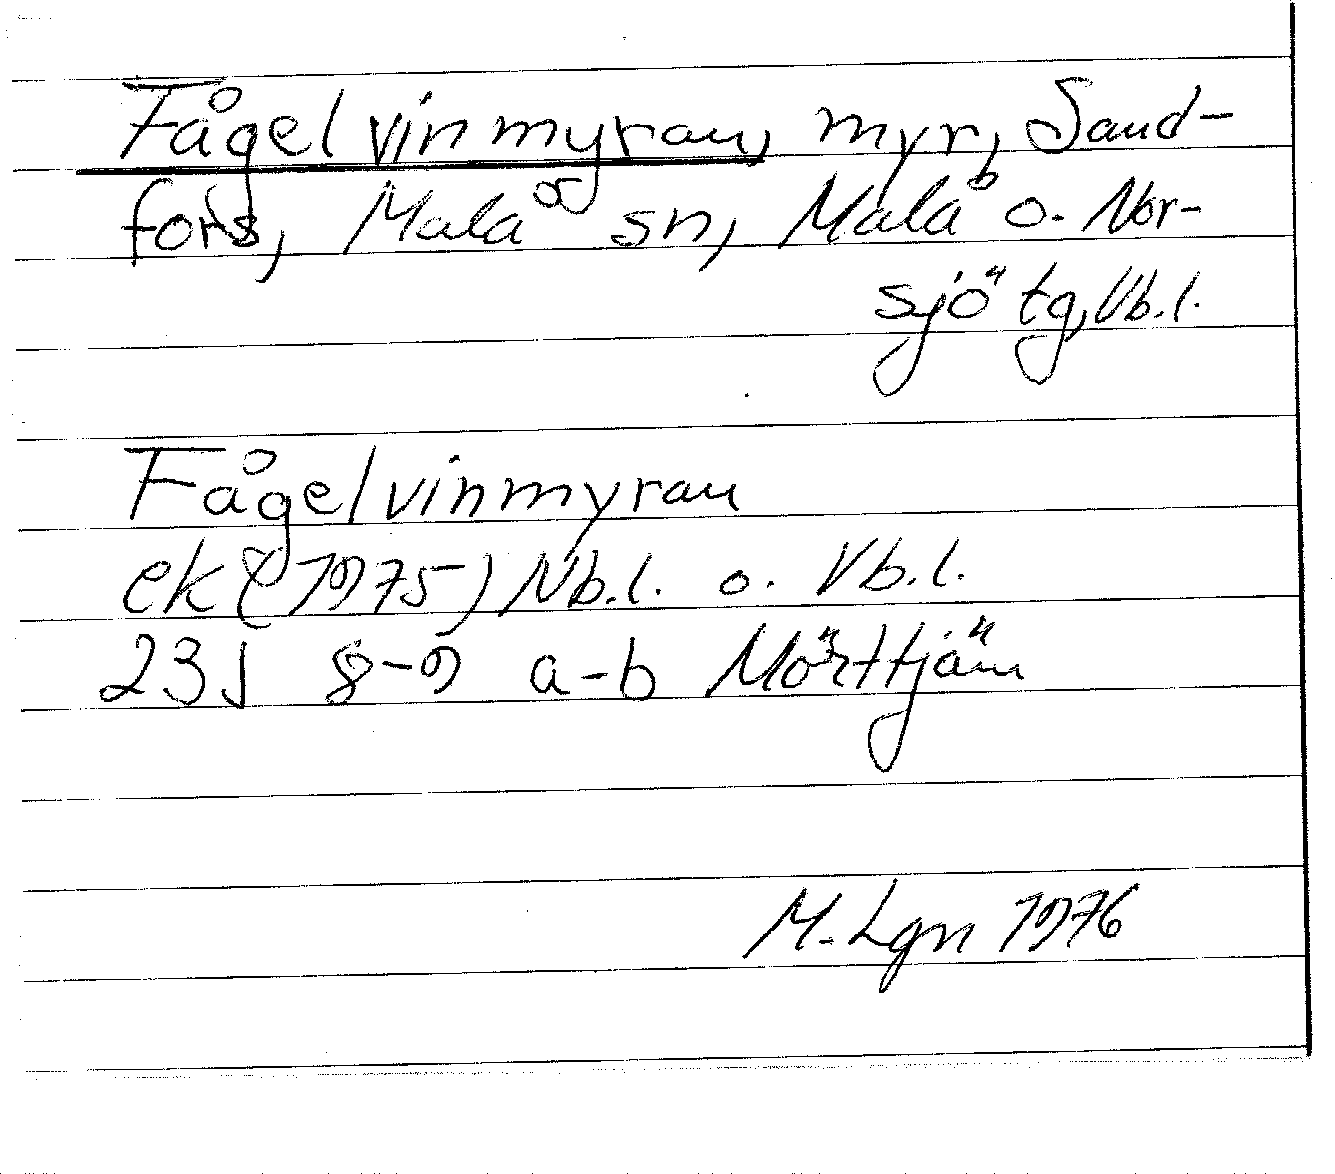 Fågelvinmyran, myr, Sand-
fors, Malå sn, Malå o. Nor-
sjö tg, Vb.l.
Fågelvinmyran
ek (1975) Nb.l. o. Vb.l.
23J 8-9 a-b Mörttjäm
M. Lgn 1976